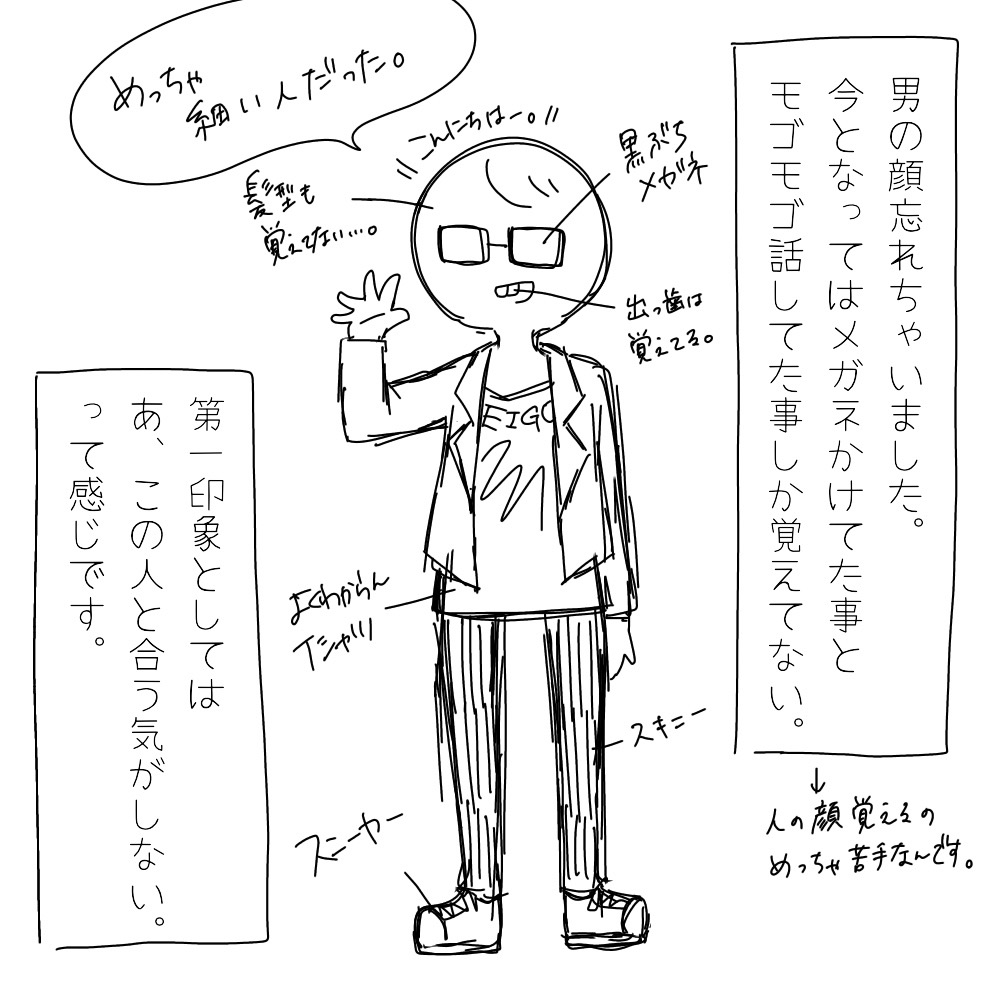 男の顔忘れちゃいました。
今となってはメガネかけてた事と
モゴモゴ話してた事しか覚えてない。
人の顔覚えるの
めっちゃ苦手なんです。
めっちゃ
細い人だった。
こんにちはー。
黒ぶち
メガネ
髪型も
覚えてない…。
出っ歯は
覚えてる。
EIGO
よくわからん
Tシャツ
スキニー
スニーヤー
第一印象としては
あ、この人と合う気がしない。
って感じです。